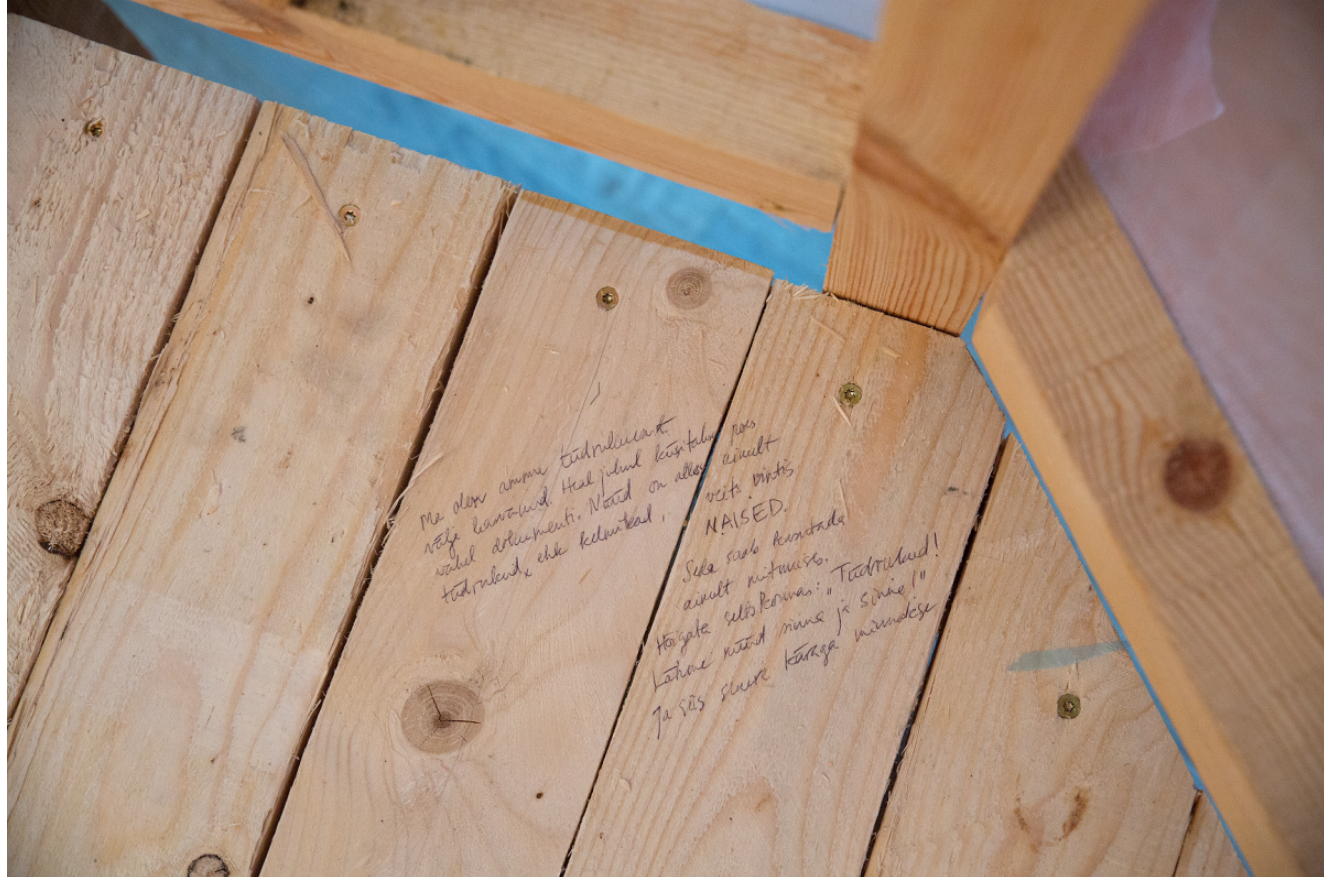 Ma olen ammu tüdrukueast
välja kasvanud. Heal juhul küsitakse poes
vahel dokumenti. Nüüd on alles ainult
tüdrukud, ehk kelmikad, veits vintis
NAISED.
Seda saab kasutada
ainult mitmuses.
Hõigata seltskonnas: "Tüdrukud!
Lähme nüüd sinna ja sinna!"
Ja siis suure käraga minnakse